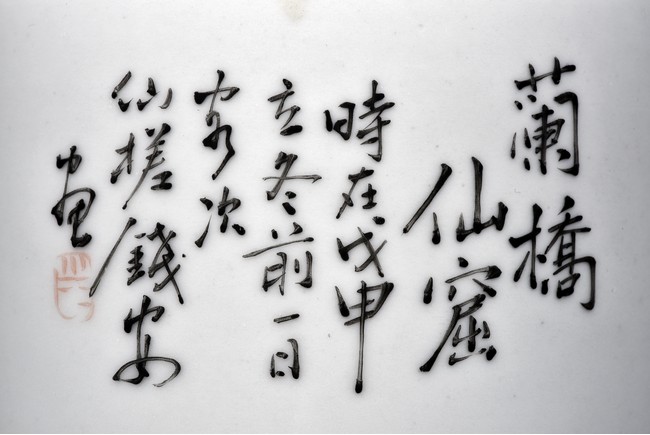 蘭橋
仙窟
時在戊申
立冬前一日
客次
仙槎錢安
画